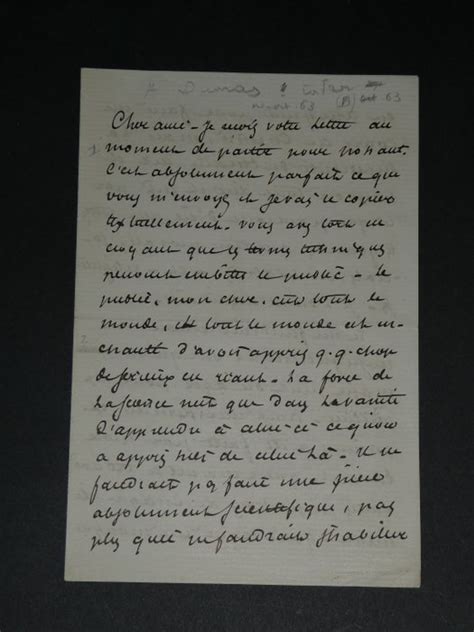 A Dumas
63 63
Cher ami - je reçois votre lettre au
moment de partir pour nohant.
C'est absolument parfait ce que
vous m'envoyez et je vais le copier
textuellement. vous avez tort en
croyant que les termes techniques
peuvent embêter le public - le
public, mon cher, c'est tout le
monde, et tout le monde est en-
chanté d'avoir appris q.q. chose
de sérieux en riant. La force de
la science n'est que dans la vanité
d'apprendre à celui-ci ce qu'on
a appris hier de celui-là. Il ne
faudrait pas faire une pièce
absolument scientifique, pas
plus qu'il ne faudrait s'habiller